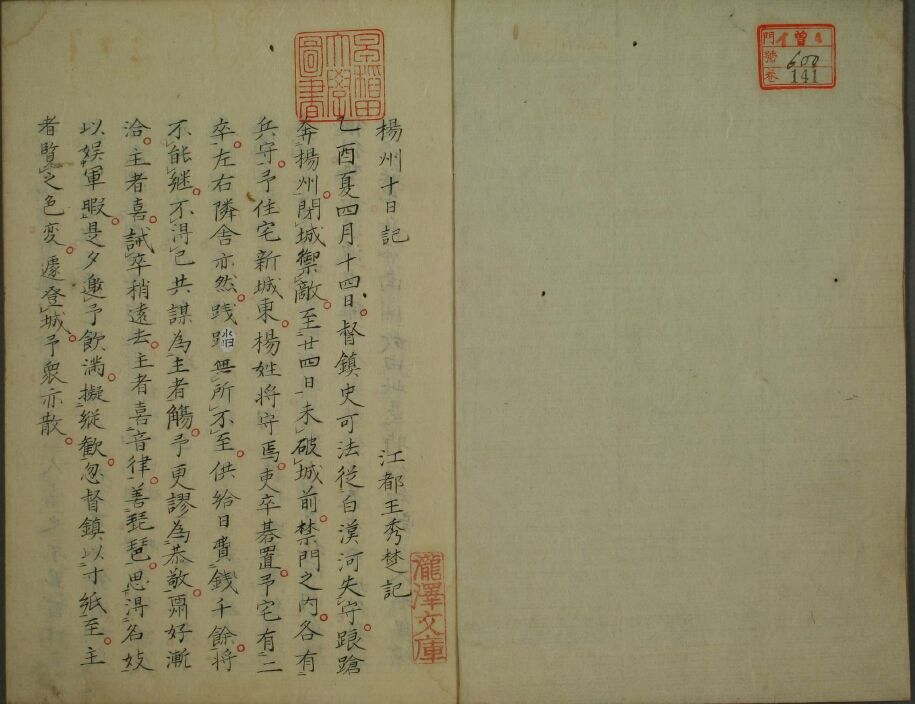 門 曽
號 600
巻 141
早稻田大學圖書
楊州十日記　江都王秀楚記
乙酉夏四月十四日。督鎮史可法從白漢河失守。踉蹌
奔揚州。閉城禦敵。至廿四日未破城前。禁門之内。各有
兵守。予住宅新城東。楊姓将守焉。吏卒碁置。予宅有二
卒。左右隣舎亦然。践踏無所不至。供給日費錢千餘。将
不能継。不得已共謀為主者觴。予更謬為恭敬。酬好漸
洽。主者喜。誡卒稍遠去。主者喜音律。善琵琶。思得名妓
以娯軍暇。是夕邀予飲。満擬縦歡。忽督鎮以寸紙至。主
者覧之色変。遽登城。予衆亦散。
瀧澤文庫